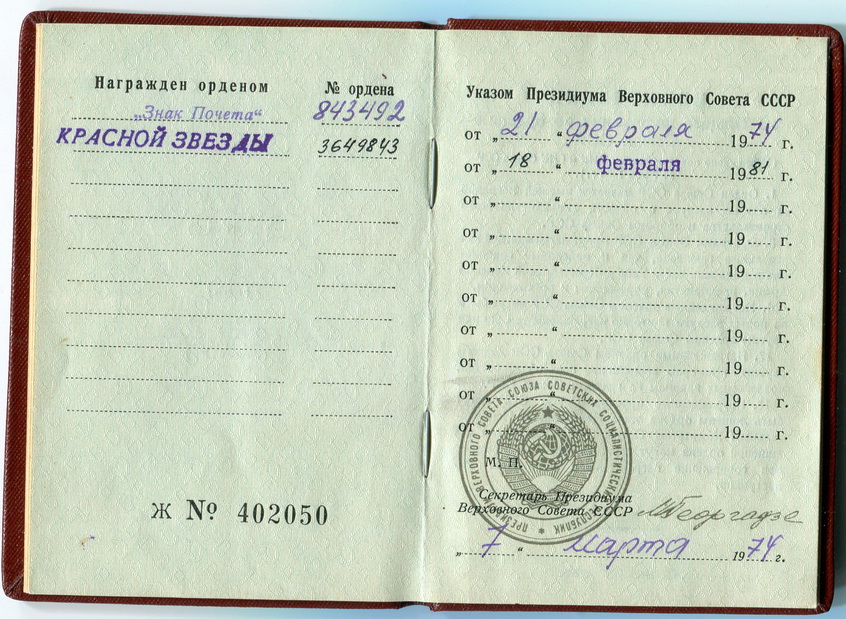 Награжден орденом № ордена
„Знак Почета“ 843492
КРАСНОЙ ЗВЕЗДЫ 3649843
Ж № 402050
Указом Президиума Верховного Совета СССР
от „ 21 “ февраля 1974 г.
от „ 18 “ февраля 1981 г.
от „ “ 19 г.
от „ “ 19 г.
от „ “ 19 г.
от „ “ 19 г.
от „ “ 19 г.
от „ “ 19 г.
от „ “ 19 г.
от „ “ 19 г.
ПРЕЗИДИУМ ВЕРХОВНОГО СОВЕТА СОЮЗА СОВЕТСКИХ СОЦИАЛИСТИЧЕСКИХ РЕСПУБЛИК
М. П.
Секретарь Президиума
Верховного Совета СССР МГеоргадзе
„ 7 “ марта 1974 г.